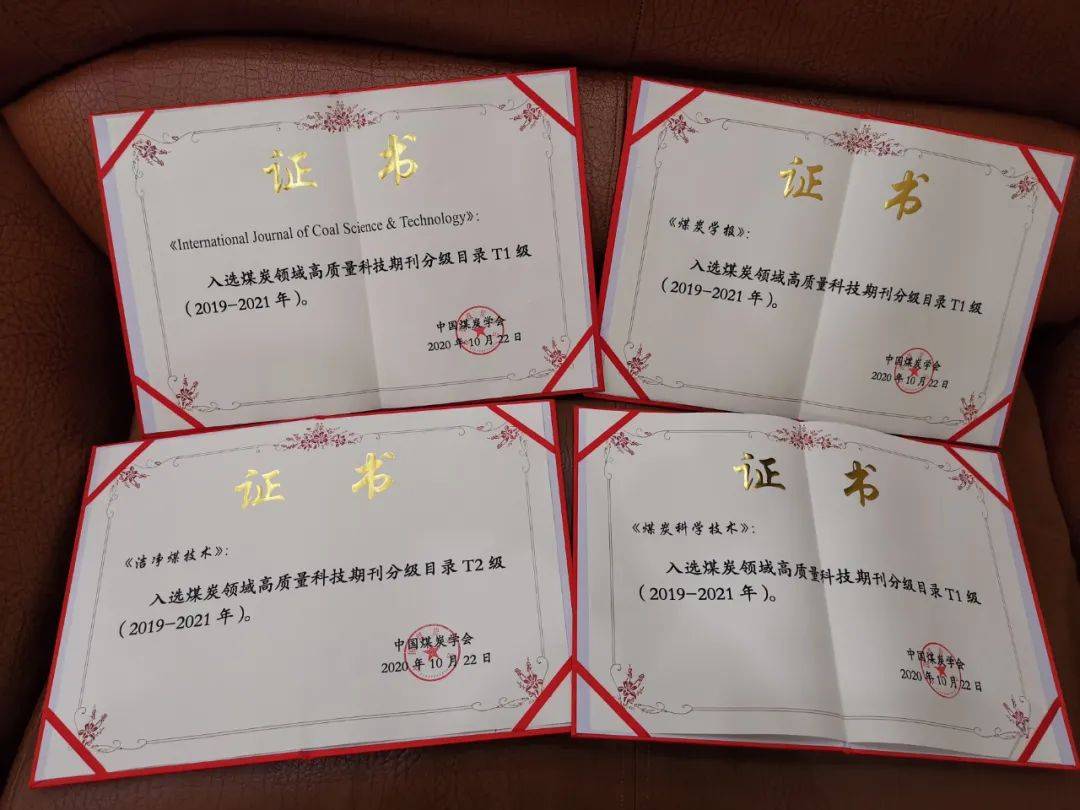 证书
《International Journal of Coal Science & Technology》:
入选煤炭领域高质量科技期刊分级目录T1级
(2019-2021年)。
中国煤炭学会
2020年10月22日
证书
《煤炭学报》:
入选煤炭领域高质量科技期刊分级目录T1级
(2019-2021年)。
中国煤炭学会
2020年10月22日
证书
《洁净煤技术》:
入选煤炭领域高质量科技期刊分级目录T2级
(2019-2021年)。
中国煤炭学会
2020年10月22日
证书
《煤炭科学技术》:
入选煤炭领域高质量科技期刊分级目录T1级
(2019-2021年)。
中国煤炭学会
2020年10月22日